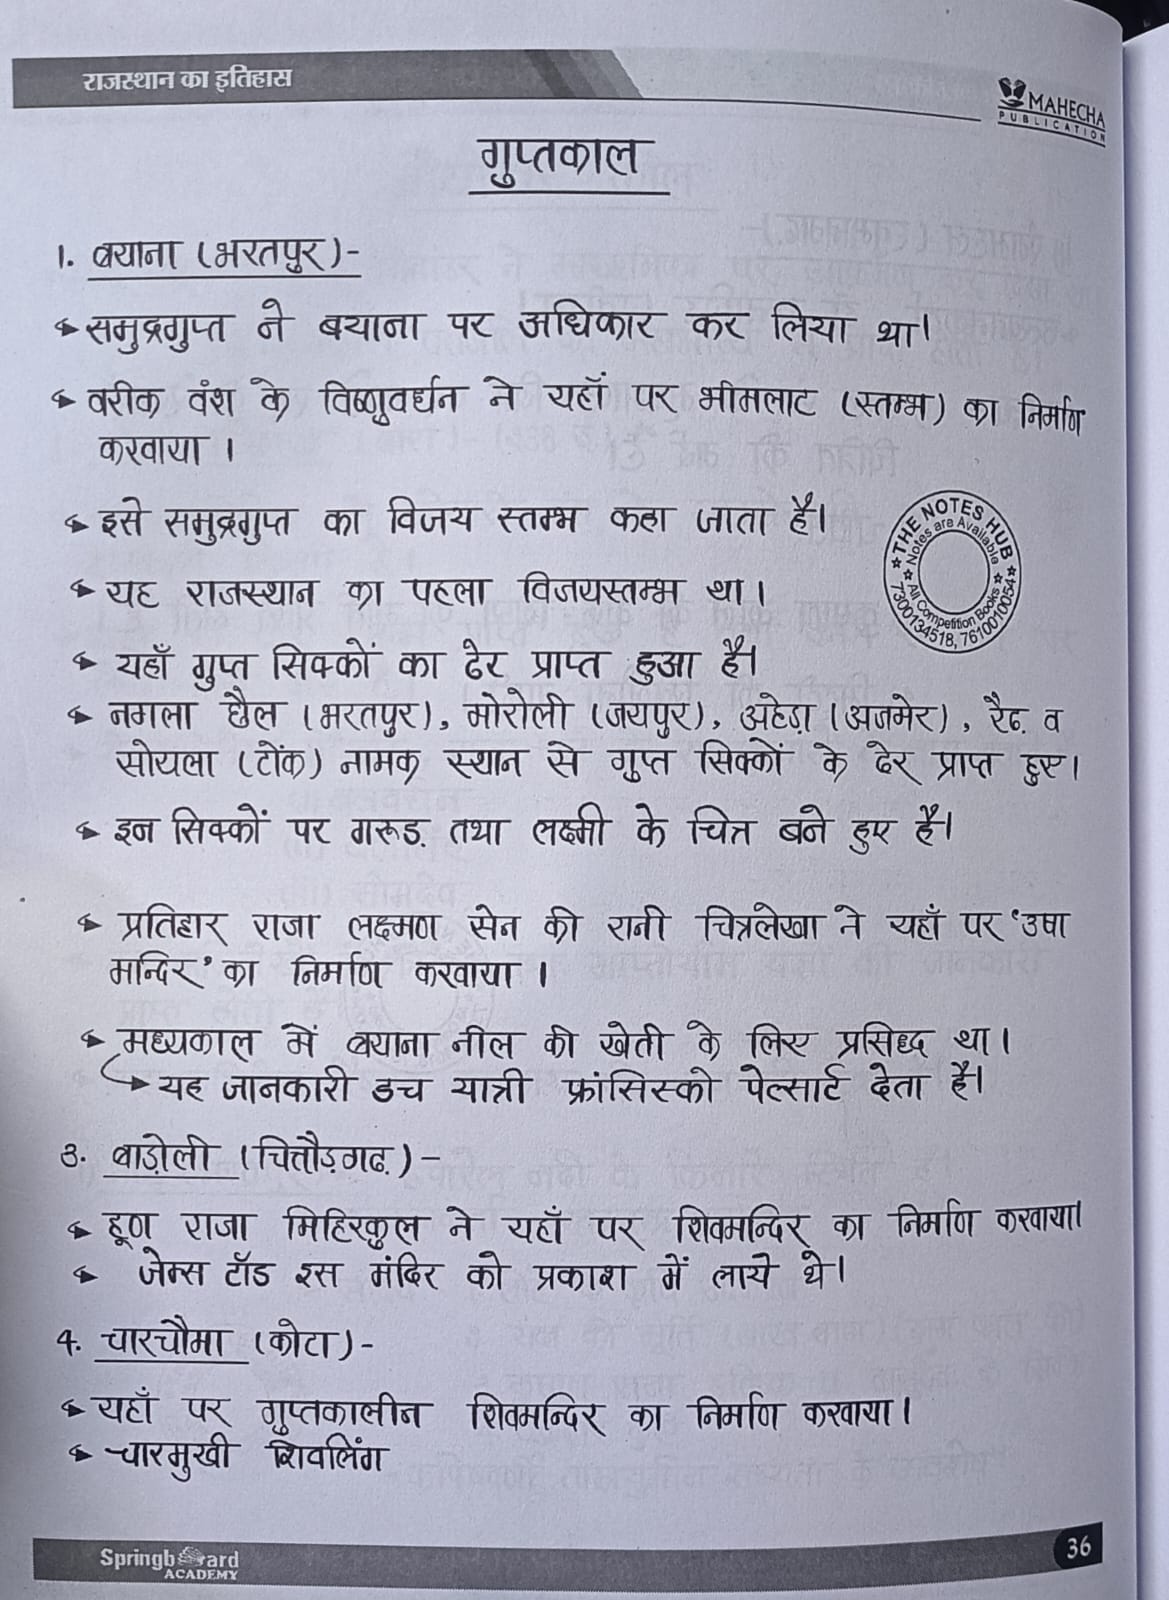 राजस्थान का इतिहास
MAHECHA
PUBLICATION
गुप्तकाल
1. बयाना (भरतपुर)-
समुद्रगुप्त ने बयाना पर अधिकार कर लिया था।
वरीक वंश के विष्णुवर्धन ने यहाँ पर भीमलाट (स्तम्भ) का निर्माण
करवाया ।
इसे समुद्रगुप्त का विजय स्तम्भ कहा जाता है।
THE NOTES HUB
Notes are Available
All Competition Books
7300134518, 7610010054
यह राजस्थान का पहला विजयस्तम्भ था ।
यहाँ गुप्त सिक्कों का ढेर प्राप्त हुआ है।
नगला छैल (भरतपुर), मोरोली (जयपुर), अहेड़ा (अजमेर), रैढ़ व
सोयला (टोंक) नामक स्थान से गुप्त सिक्कों के ढेर प्राप्त हुए ।
इन सिक्कों पर गरूड़ तथा लक्ष्मी के चित्र बने हुए है।
प्रतिहार राजा लक्ष्मण सेन की रानी चित्रलेखा ने यहाँ पर 'उषा
मन्दिर' का निर्माण करवाया ।
मध्यकाल में बयाना नील की खेती के लिए प्रसिद्ध था ।
यह जानकारी डच यात्री फ्रांसिस्को पेल्सार्ट देता है।
3. बाड़ोली (चित्तौड़गढ़) -
हूण राजा मिहिरकुल ने यहाँ पर शिवमन्दिर का निर्माण करवाया।
जेम्स टॉड इस मंदिर को प्रकाश में लाये थे।
4. चारचौमा (कोटा)-
यहाँ पर गुप्तकालीन शिवमन्दिर का निर्माण करवाया ।
चारमुखी शिवलिंग
Springboard
ACADEMY
36